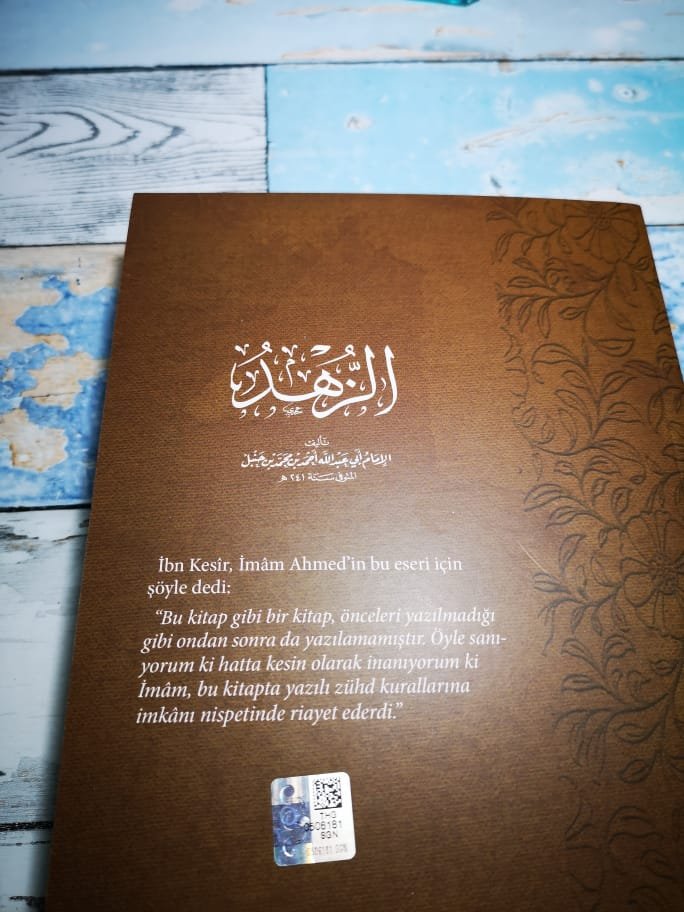 الزُّهْدُ
تأليف
الإمَامُ أبي عَبْد اللّٰه أحْمَد بْن محَمَّد بْن حَنْبَل
المتوفى سَنة ٢٤١ هـ
İbn Kesîr, İmâm Ahmed'in bu eseri için
şöyle dedi:
“Bu kitap gibi bir kitap, önceleri yazılmadığı
gibi ondan sonra da yazılamamıştır. Öyle sanı-
yorum ki hatta kesin olarak inanıyorum ki
İmâm, bu kitapta yazılı zühd kurallarına
imkânı nispetinde riayet ederdi.”
THG
0506181
SGN
0506181 SGN